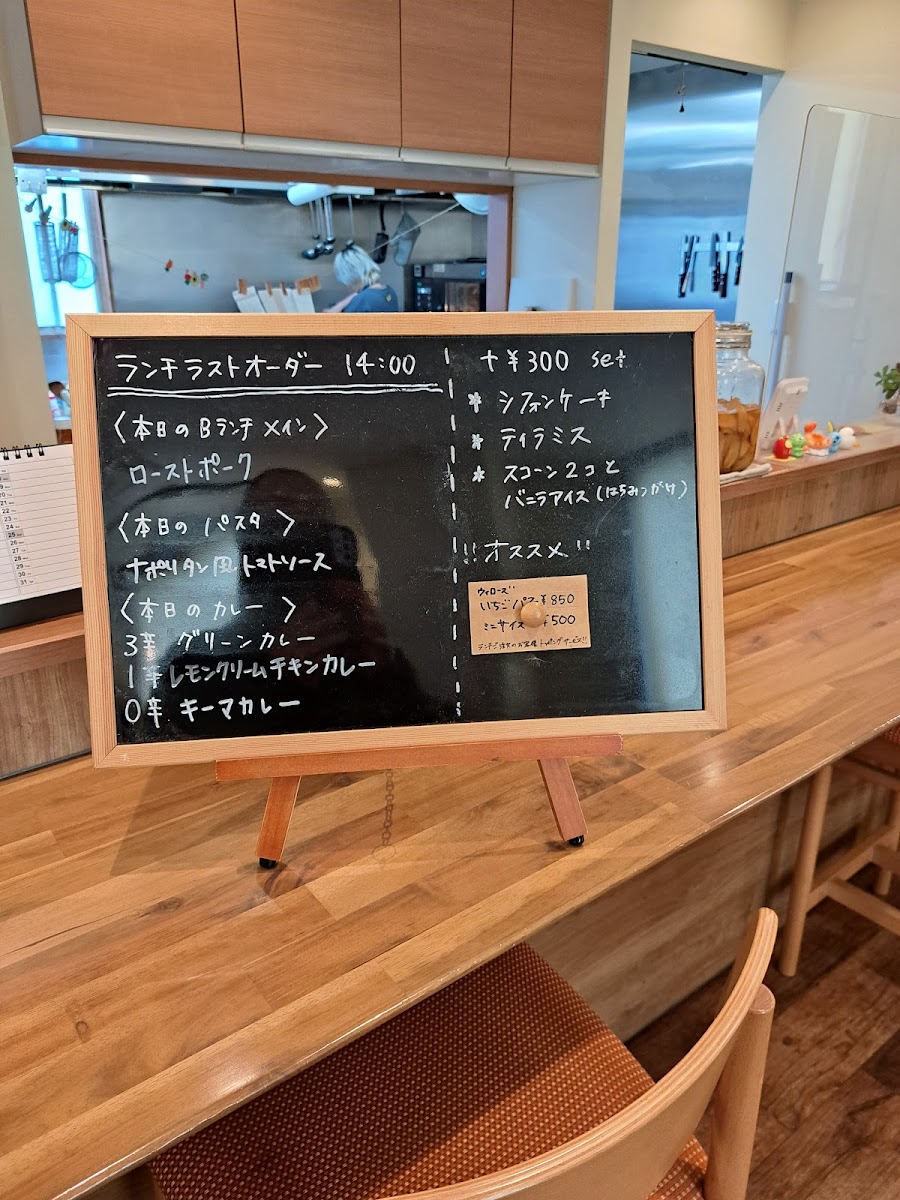 ランチラストオーダー 14:00
〈本日のBランチメイン〉
ローストポーク
〈本日の パスタ 〉
ナポリタン風トマトソース
〈本日の カレー 〉
3辛 グリーンカレー
1辛 レモンクリームチキンカレー
0辛 キーマカレー
+¥300 set
* シフォンケーキ
* ティラミス
* スコーン2コと
バニラアイス(はちみつがけ)
!!オススメ!!
ウィローズ
いちごパフ ¥850
ミニサイズ ¥500